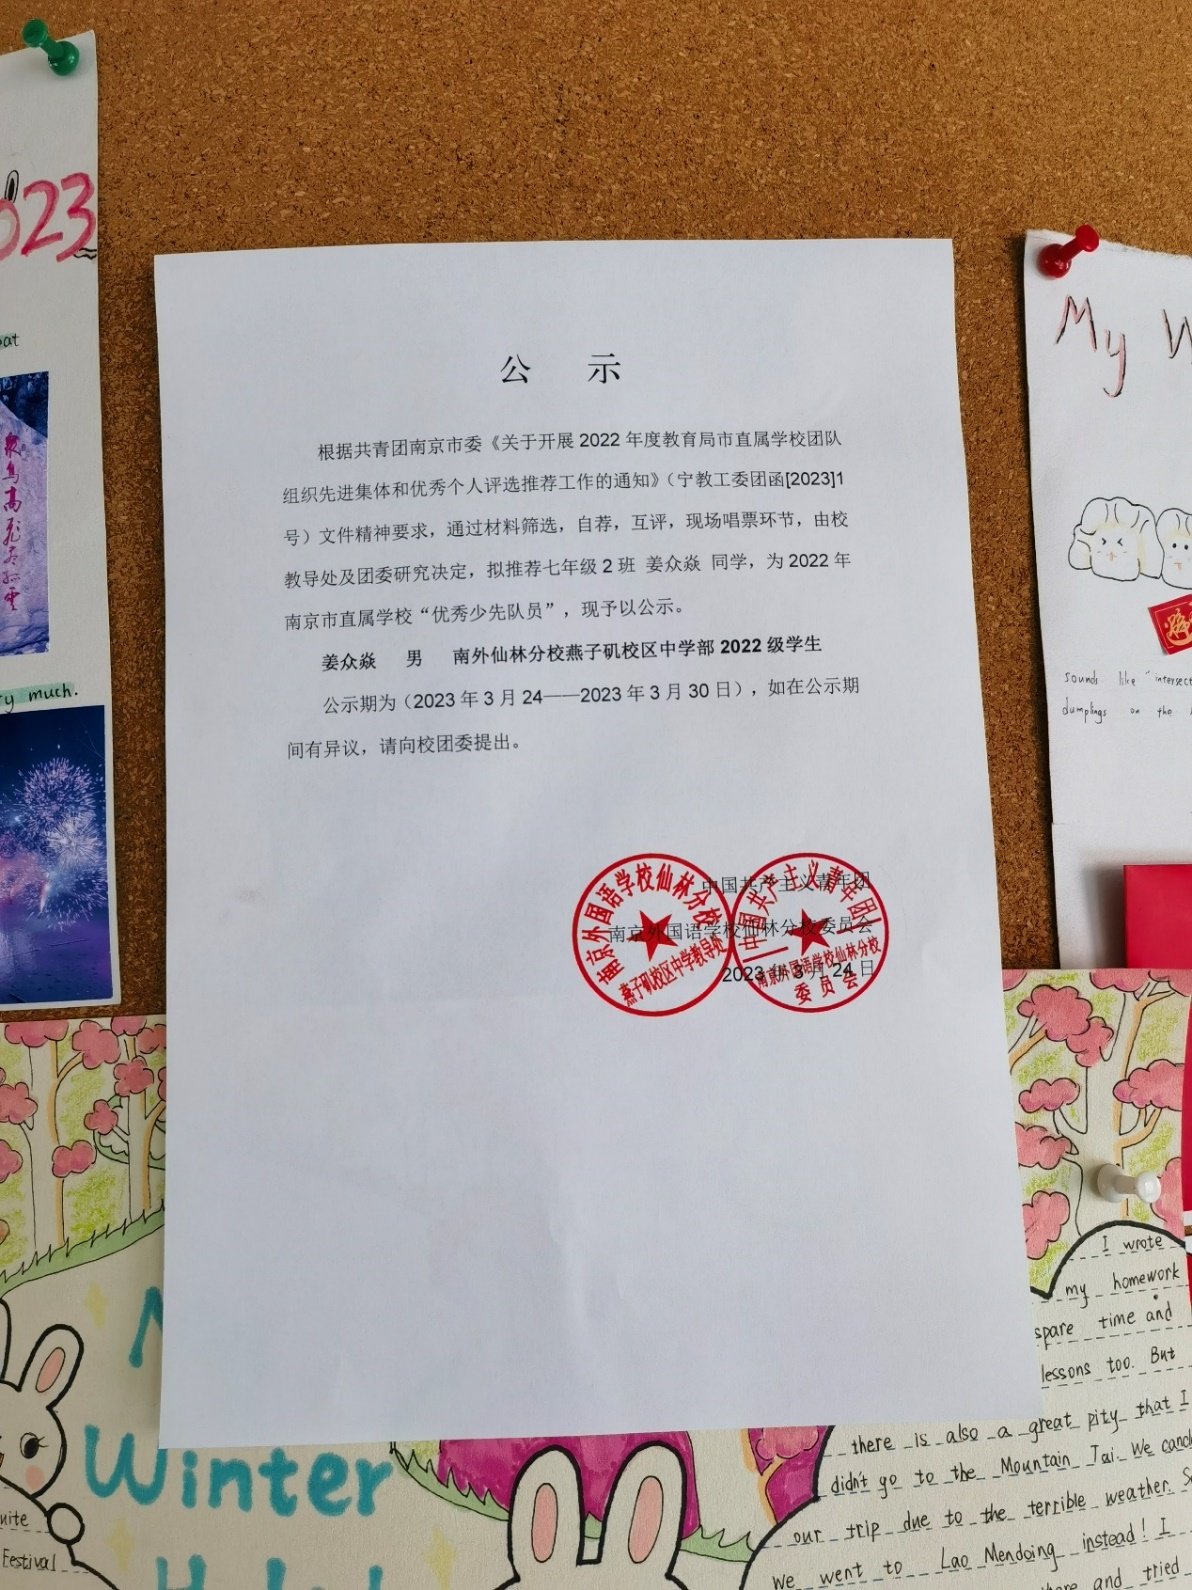 公 示
根据共青团南京市委《关于开展 2022 年度教育局市直属学校团队
组织先进集体和优秀个人评选推荐工作的通知》（宁教工委团函[2023]1
号）文件精神要求，通过材料筛选，自荐，互评，现场唱票环节，由校
教导处及团委研究决定，拟推荐七年级 2 班 姜众焱 同学，为 2022 年
南京市直属学校“优秀少先队员”，现予以公示。
姜众焱 男 南外仙林分校燕子矶校区中学部 2022 级学生
公示期为（2023 年 3 月 24——2023 年 3 月 30 日），如在公示期
间有异议，请向校团委提出。
中国共产主义青年团
南京外国语学校仙林分校委员会
2023 年 3 月 24 日
南京外国语学校仙林分校
燕子矶校区中学教导处
中国共产主义青年团
南京外国语学校仙林分校
委员会
023
much.
My W
sounds like "intersect
dumplings on the
Winter
Festival
I wrote
my homework
spare time and
lessons too. But
there is also a great pity that I
didnt go to the Mountain Tai. We
our trip due to the terrible weather.
We went to Lao Mendoing instead! I
and tried